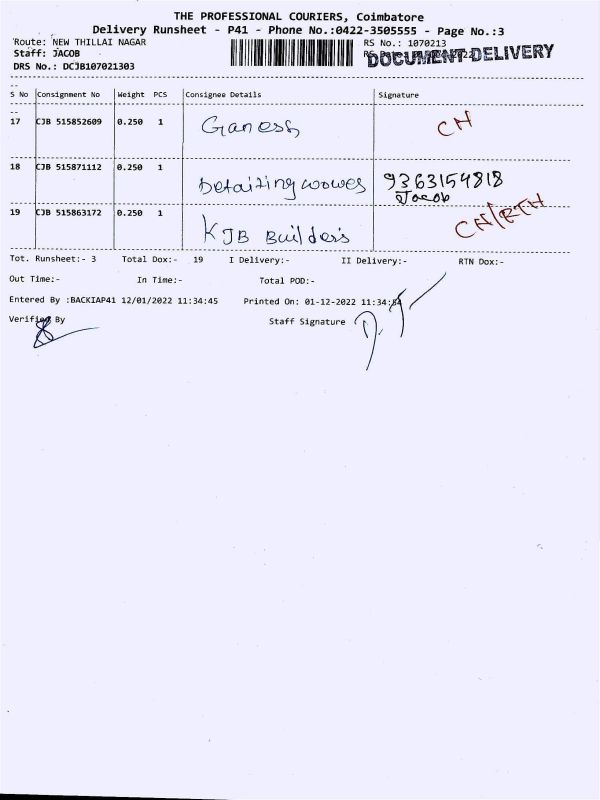 THE PROFESSIONAL COURIERS, Coimbatore
Delivery Runsheet - P41 - Phone No.:0422-3505555 - Page No.:3
Route: NEW THILLAI NAGAR
RS No.: 1070213
Staff: JACOB
DOCUMENT DELIVERY
DRS No.: DCJB107021303
S No Consignment No Weight PCS Consignee Details Signature
17 CJB 515852609 0.250 1 Ganesh CH
18 CJB 515871112 0.250 1 9363154818
Jacob
19 CJB 515863172 0.250 1 KJB Builder's CH/RTH
Tot. Runsheet:- 3 Total Dox:- 19 I Delivery:- II Delivery:- RTN Dox:-
Out Time:- In Time:- Total POD:-
Entered By :BACKIAP41 12/01/2022 11:34:45 Printed On: 01-12-2022 11:34:54
Verified By Staff Signature